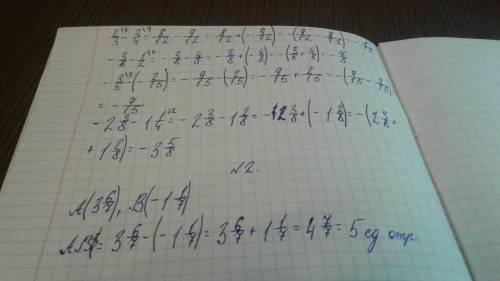 2/3 - 3/4 = 8/12 - 9/12 = 8/12 + (-9/12) = -(9/12 - 8/12) = -1/12
-3/8 - 1/2 = -3/8 - 4/8 = -3/8 + (-4/8) = -(3/8 + 4/8) = -7/8
-3/5 - (-2/15) = -9/15 - (-2/15) = -9/15 + 2/15 = -(9/15 - 2/15)
= -7/15
-2 3/8 - 1 1/4 = -2 3/8 - 1 2/8 = -2 3/8 + (-1 2/8) = -(2 3/8 +
+ 1 2/8) = -3 5/8
№2.
A(3 6/7), B(-1 1/7)
AB = 3 6/7 - (-1 1/7) = 3 6/7 + 1 1/7 = 4 7/7 = 5 ед. отр.